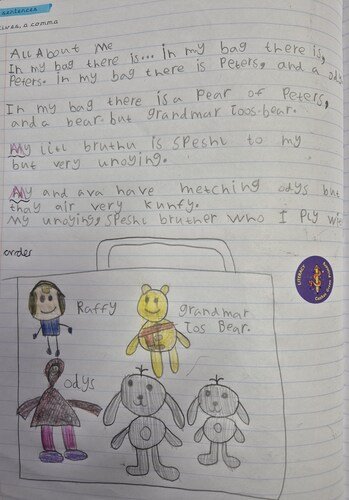 sentences
All About Me
In my bag there is... in my bag there is,
Peters. in my bag there is Peters, and a odys
In my bag there is a Pear of Peters,
and a bear. but grandmar toos-bear.
My litl bruthu is speshl to my
but very unoying.
My and ava have metching odys but
thay air very kunfy.
My unoying, speshl bruther who I ply
Raffy
grandmar
tos Bear.
odys
LITERACY